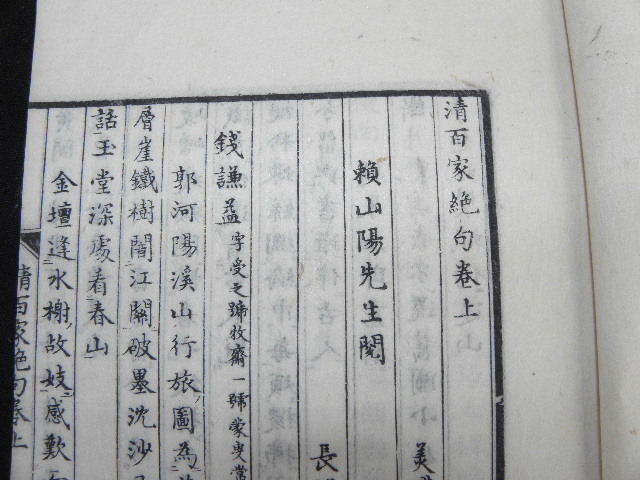 清百家絶句卷上
美
賴山陽先生閱
長
錢謙益字受之號牧齋一號蒙叟常
郭河陽溪山行旅圖為
層崖鐵樹闇江關破墨沈沙
話玉堂深處看春山
金壇逢水榭故妓感歎
清百家絶句卷上